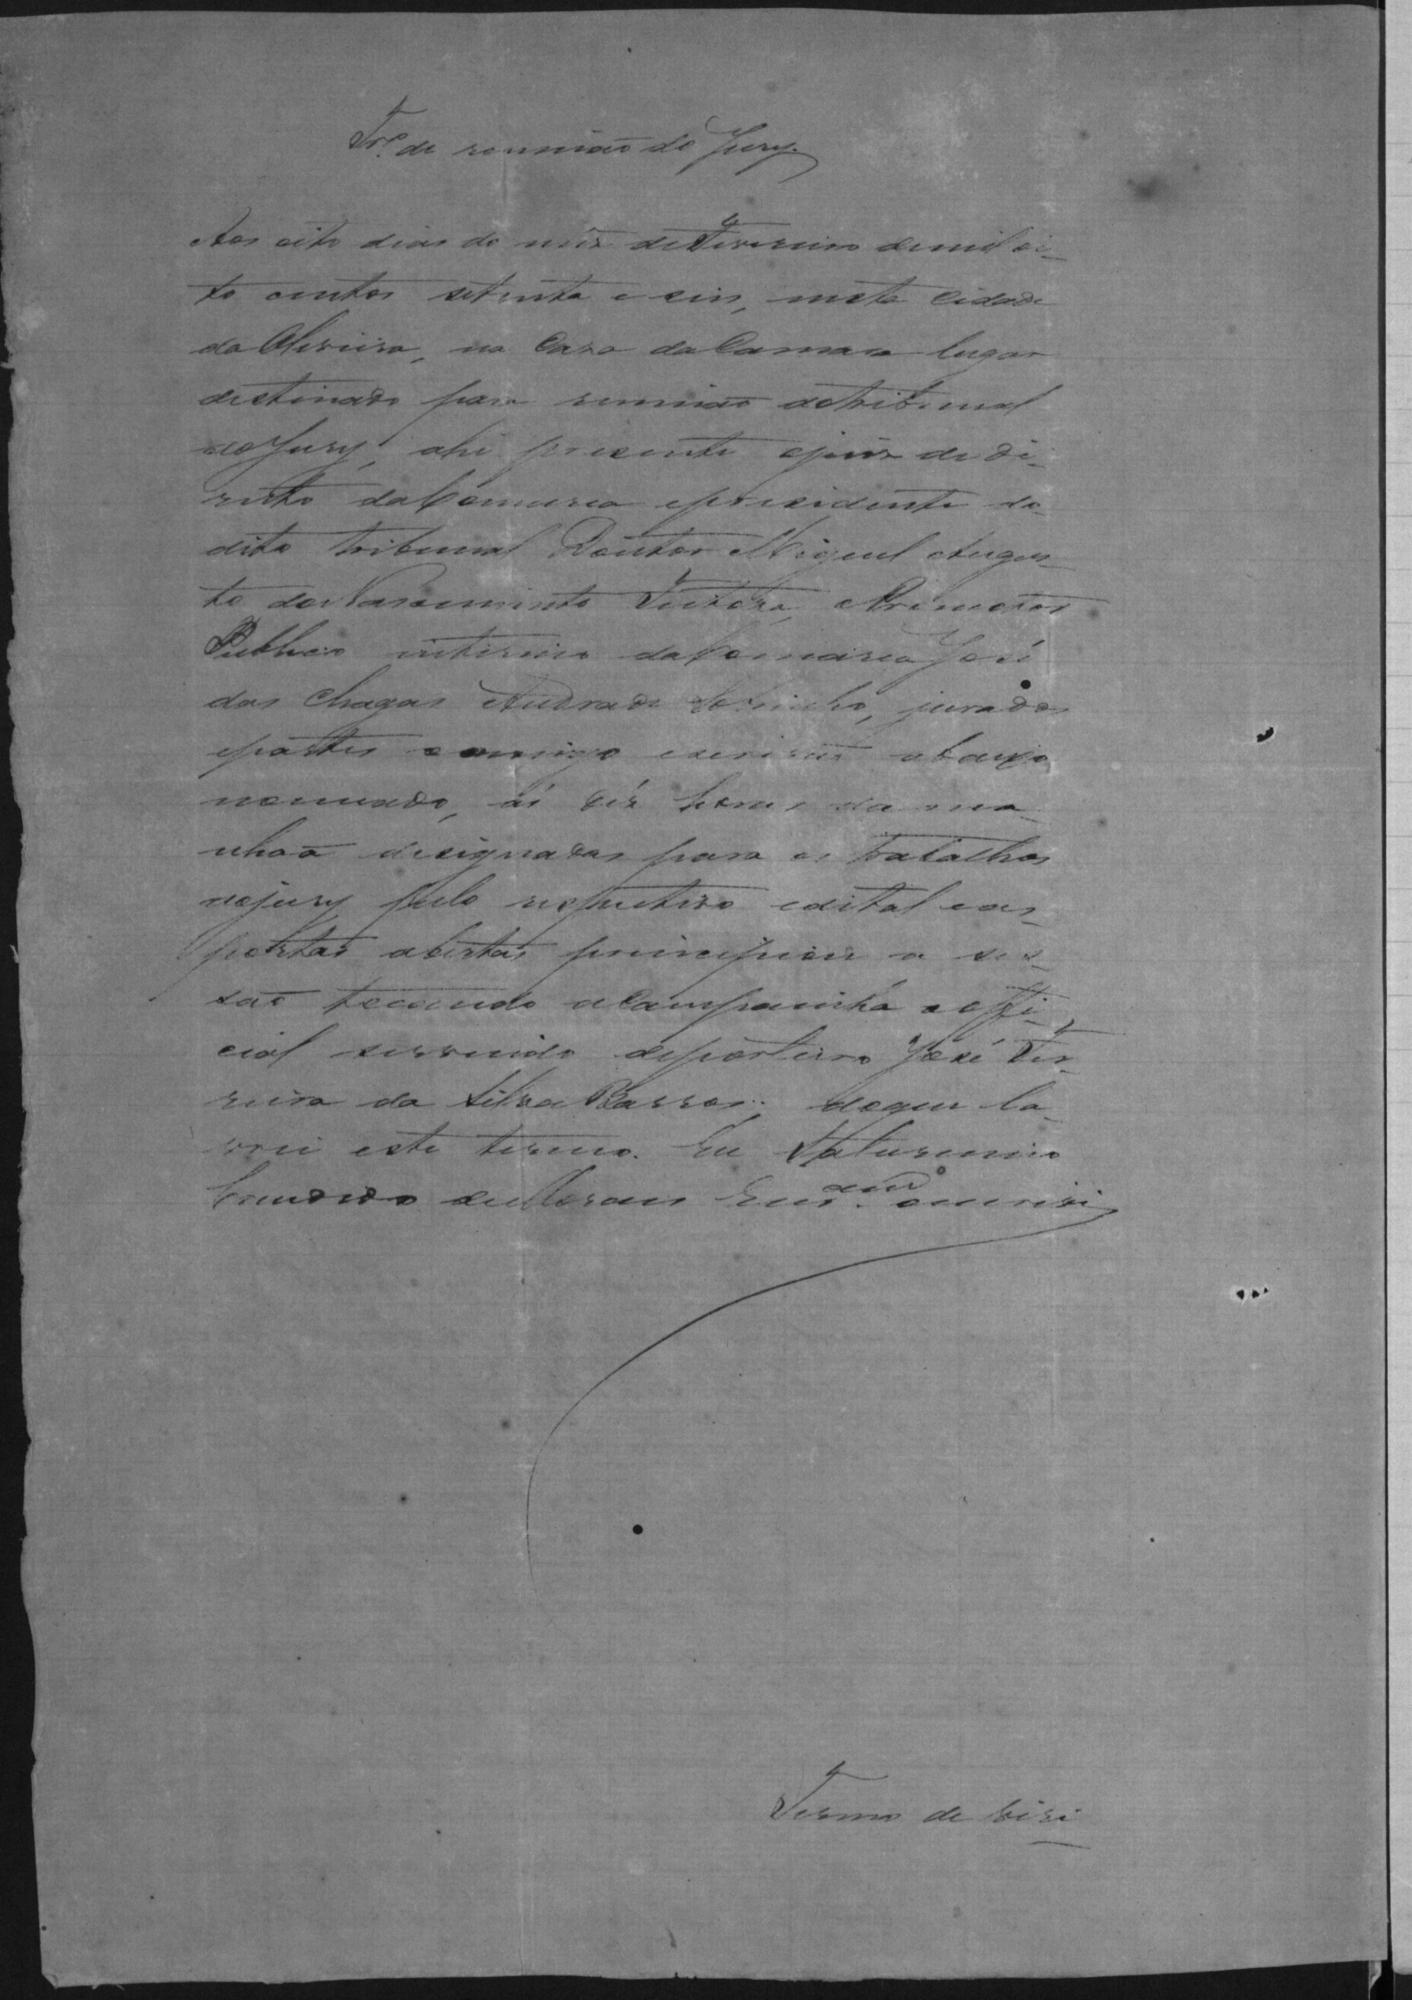 Tr.º de reunião do Jury.
Aos oito dias do mez de Fevereiro de mil oi-
to centos setenta e seis, nesta Cidade
da Oliveira, na Casa da Camara lugar
destinado para reunião do tribunal
do Jury, ahi presente o juiz de di-
reito da Comarca e presidente do
dito tribunal Doutor Miguel Augus-
to do Nascimento Feitosa, Promotor
Publico interino da Comarca José
das Chagas Andrade Sobrinho, jurados
e partes comigo escrivão abaixo
nomeado, ás dés horas da ma-
nhaã designadas para os trabalhos
do jury pelo respectivo edital e as
portas abertas principiou a ses-
são tocando a Campainha o offi-
cial servindo de porteiro José Fer-
reira da Silva Barros; do que la-
vrei este termo. Eu Saturnino
de Moraes o escrevi
Termo de